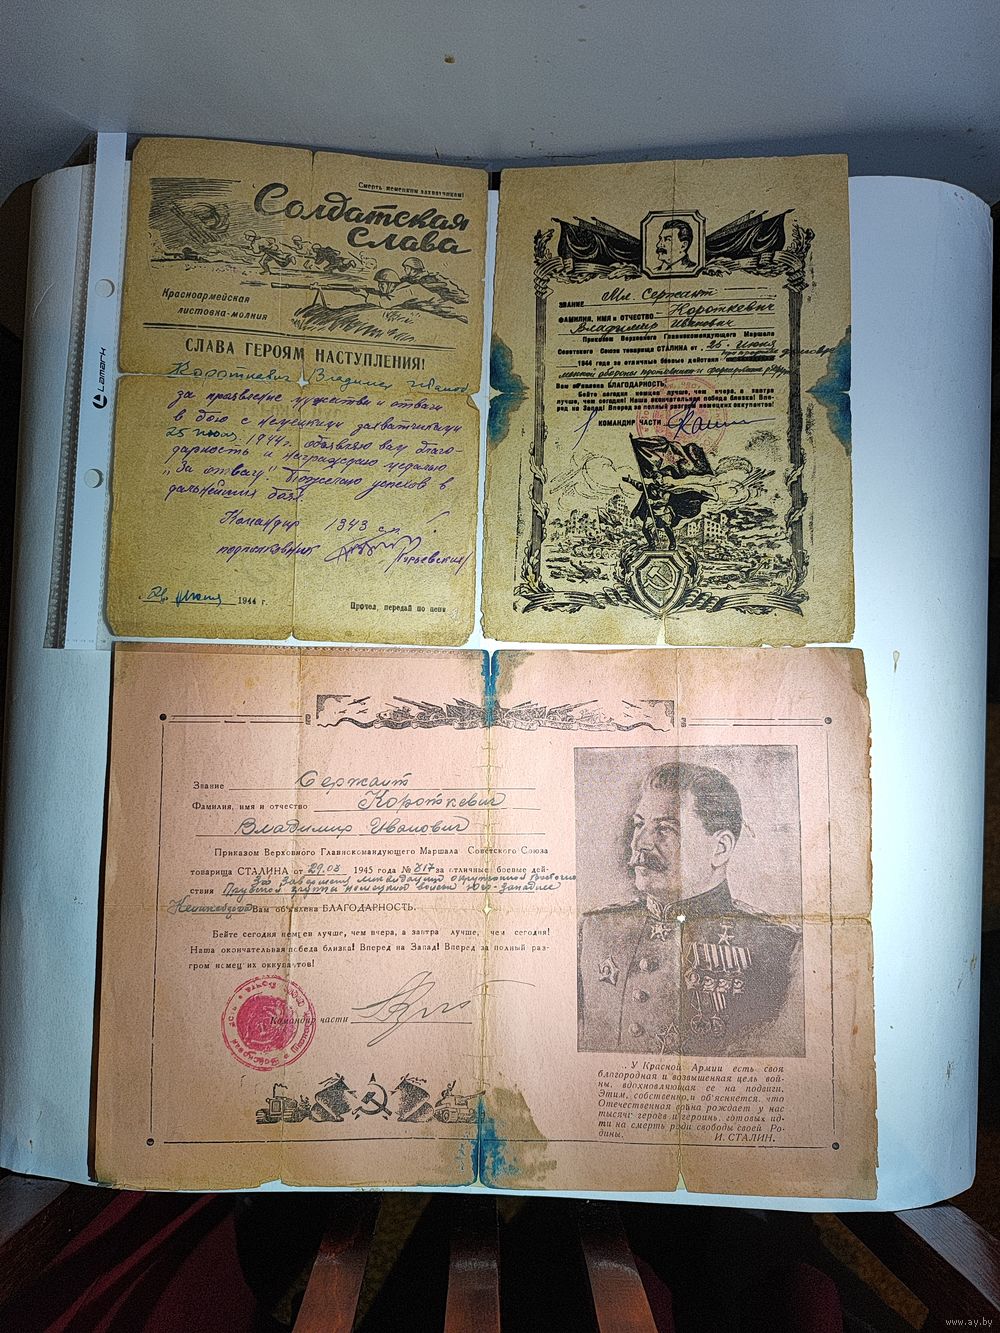 Смерть немецким захватчикам!
Солдатская
слава
Красноармейская
листовка-молния
СЛАВА ГЕРОЯМ НАСТУПЛЕНИЯ!
Короткевич Владимир Иванов.
за проявление мужества и отваги
в бою с немецкими захватчиками
25 июня 1944 г. объявляю вам благо-
дарность и награждаю медалью
"За отвагу". Пожелаю успехов в
дальнейших боях.
Командир 1343 сп
подполковник
июня 1944 г.
Прочел, передай по цепи
Lamark
ЗВАНИЕ Мл. Сержант
ФАМИЛИЯ, ИМЯ и ОТЧЕСТВО Короткевич
Владимир Иванович
Приказом Верховного Главнокомандующего Маршала
Советского Союза товарища СТАЛИНА от 25 июня
1944 года за отличные боевые действия при прорыве
обороны противника и форсирование реки
Вам объявлена БЛАГОДАРНОСТЬ.
Бейте сегодня немцев лучше, чем вчера, а завтра
лучше, чем сегодня! Наша окончательная победа близка! Впе-
ред на Запад! Вперед за полный разгром немецких оккупантов!
КОМАНДИР ЧАСТИ
Звание Сержант
Фамилия, имя и отчество Короткевич
Владимир Иванович
Приказом Верховного Главнокомандующего Маршала Советского Союза
товарища СТАЛИНА от 29.03 1945 года № 317 за отличные боевые дей-
ствия За завершение ликвидации окруженной Восточно
Прусской группы немецких войск Юго-западнее
Кенигсберга Вам объявлена БЛАГОДАРНОСТЬ.
Бейте сегодня немцев лучше, чем вчера, а завтра лучше, чем сегодня!
Наша окончательная победа близка! Вперед на Запад! Вперед за полный раз-
гром немецких оккупантов!
Командир части
... У Красной Армии есть своя
благородная и возвышенная цель вой-
ны, вдохновляющая ее на подвиги.
Этим, собственно, и об'ясняется, что
Отечественная война рождает у нас
тысячи героев и героинь, готовых ид-
ти на смерть ради свободы своей Ро-
дины. И. СТАЛИН.
www.ay.by